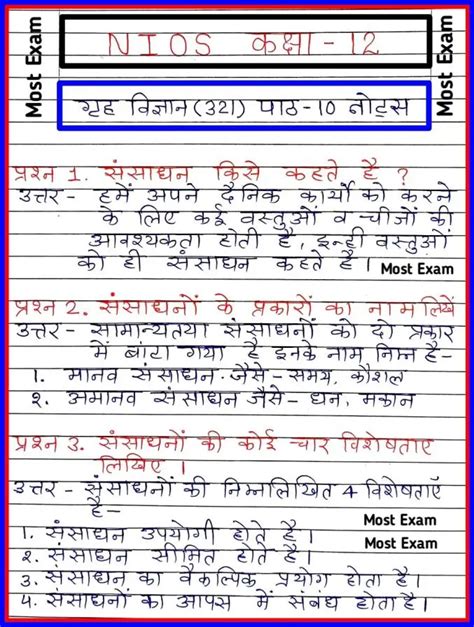 NIOS कक्षा - 12
Most Exam
Most Exam
गृह विज्ञान (321) पाठ-10 नोट्स
प्रश्न 1. संसाधन किसे कहते है ?
उत्तर - हमें अपने दैनिक कार्यो को करने
के लिए कई वस्तुओं व चीजों की
आवश्यकता होती है, इन्ही वस्तुओं
को ही संसाधन कहते है। Most Exam
प्रश्न 2. संसाधनों के प्रकारों का नाम लिखें
उत्तर - सामान्यतया संसाधनों को दो प्रकार
में बांटा गया है इनके नाम निम्न है-
1. मानव संसाधन जैसे - समय, कौशल
२. अमानव संसाधन जैसे - धन, मकान
प्रश्न 3. संसाधनों की कोई चार विशेषताए
लिखिए ।
उत्तर - संसाधनों की निम्नलिखित 4 विशेषताएँ
है-
Most Exam
1. संसाधन उपयोगी होते है।
Most Exam
२. संसाधन सीमित होते है।
3. संसाधन का वैकल्पिक प्रयोग होता है।
4. संसाधनों का आपस में संबंध होता है।